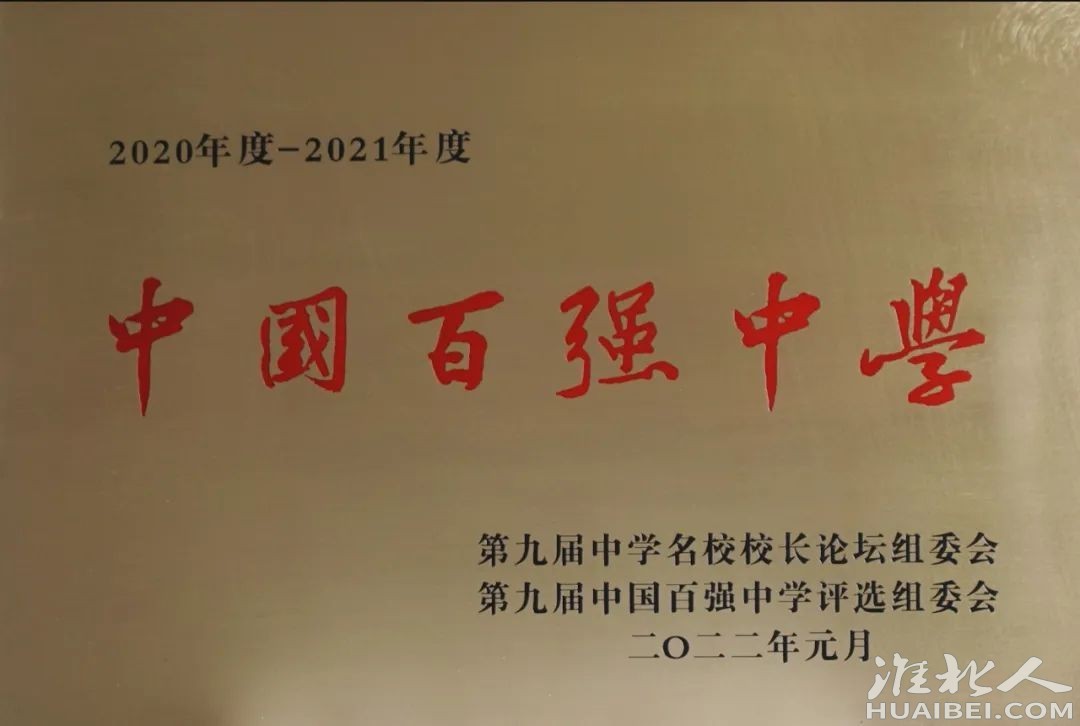 2020年度-2021年度
中國百强中學
第九届中学名校校长论坛组委会
第九届中国百强中学评选组委会
二〇二二年元月
淮北人
HUAIBEI.COM